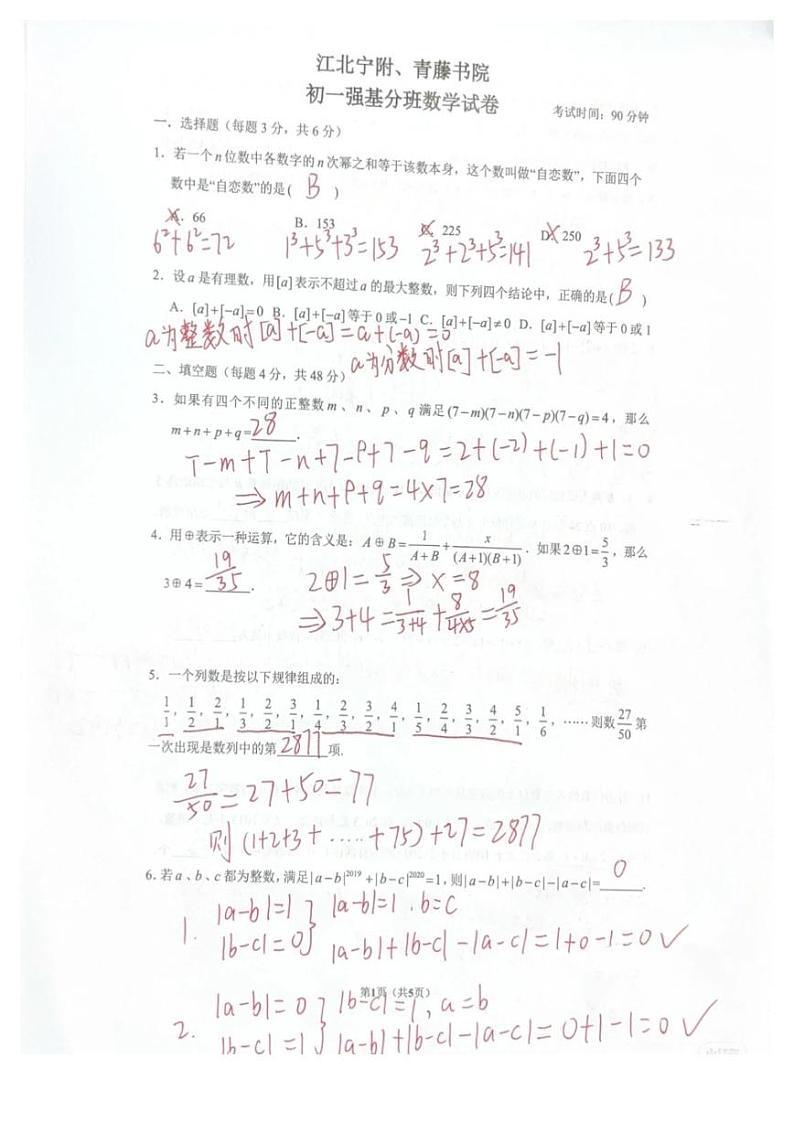 江北宁附、青藤书院
初一强基分班数学试卷
考试时间：90分钟
一．选择题（每题3分，共6分）
1．若一个n位数中各数字的n次幂之和等于该数本身，这个数叫做“自恋数”，下面四个
数中是“自恋数”的是( B )
A．66 B．153 C．225 D．250
6²+6²=72 1³+5³+3³=153 2³+2³+5³=141 2³+5³=133
2．设a是有理数，用[a]表示不超过a的最大整数，则下列四个结论中，正确的是( B )
A．[a]+[-a]=0 B．[a]+[-a]等于0或-1 C．[a]+[-a]≠0 D．[a]+[-a]等于0或1
a为整数时[a]+[-a]=a+(-a)=0
a为分数时[a]+[-a]=-1
二、填空题（每题4分，共48分）
3．如果有四个不同的正整数m、n、p、q满足(7-m)(7-n)(7-p)(7-q)=4，那么
m+n+p+q=28．
7-m+7-n+7-p+7-q=2+(-2)+(-1)+1=0
⇒m+n+p+q=4×7=28
4．用⊕表示一种运算，它的含义是：A⊕B=1/(A+B)+x/((A+1)(B+1))．如果2⊕1=5/3，那么
3⊕4=19/35．
2⊕1=5/3⇒x=8
⇒3+4=1/(3+4)+8/(4×5)=19/35
5．一个列数是按以下规律组成的：
1/1，1/2，2/1，1/3，2/2，3/1，1/4，2/3，3/2，4/1，1/5，2/4，3/3，4/2，5/1，1/6，……则数27/50第
一次出现是数列中的第2877项.
27/50=27+50=77
则(1+2+3+……+75)+27=2877
6．若a、b、c都为整数，满足|a-b|²⁰¹⁹+|b-c|²⁰²⁰=1，则|a-b|+|b-c|-|a-c|=0．
1. |a-b|=1 } |a-b|=1，b=c
|b-c|=0 } |a-b|+|b-c|-|a-c|=1+0-1=0 ✓
第1页（共5页）
2. |a-b|=0 } |b-c|=1，a=b
|b-c|=1 } |a-b|+|b-c|-|a-c|=0+1-1=0 ✓